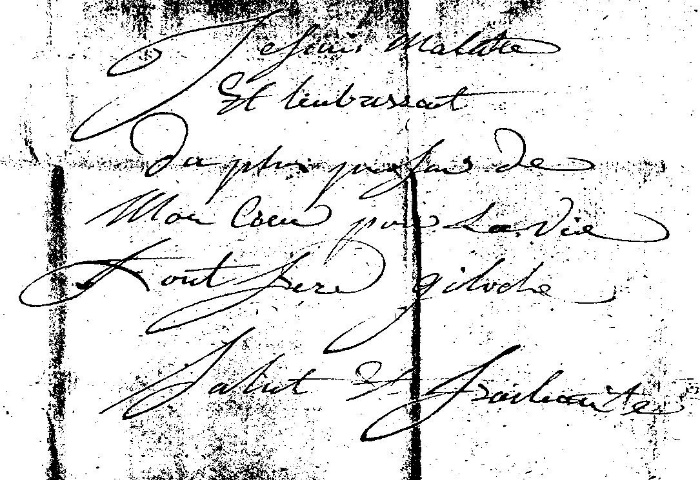 Je suis Malade
Et l'embrassent
Du plus profond de
Mon Coeur pour La Vie
Tout frere giloche
Salut Et